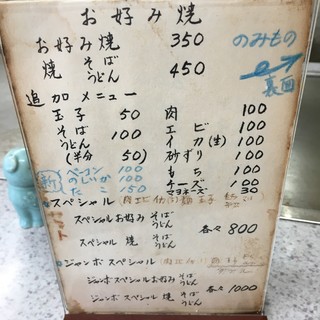 お好み焼
お好み焼 350
焼 そば うどん 450
のみもの
裏面
追加メニュー
玉子 50
そば うどん 100
(半分 50)
ベーコン 100
のしいか 100
たこ 150
肉 100
エビ 100
イカ(生) 100
砂ずり 100
もち 100
チーズ 100
マヨネーズ 30
スペシャル (肉 エビ イカ(生) 麺 玉子
スペシャルお好み そば うどん
スペシャル 焼 そば うどん
各々 800
ジャンボスペシャル
ジャンボスペシャルお好み そば うどん
ジャンボスペシャル 焼 そば うどん
各々 1000